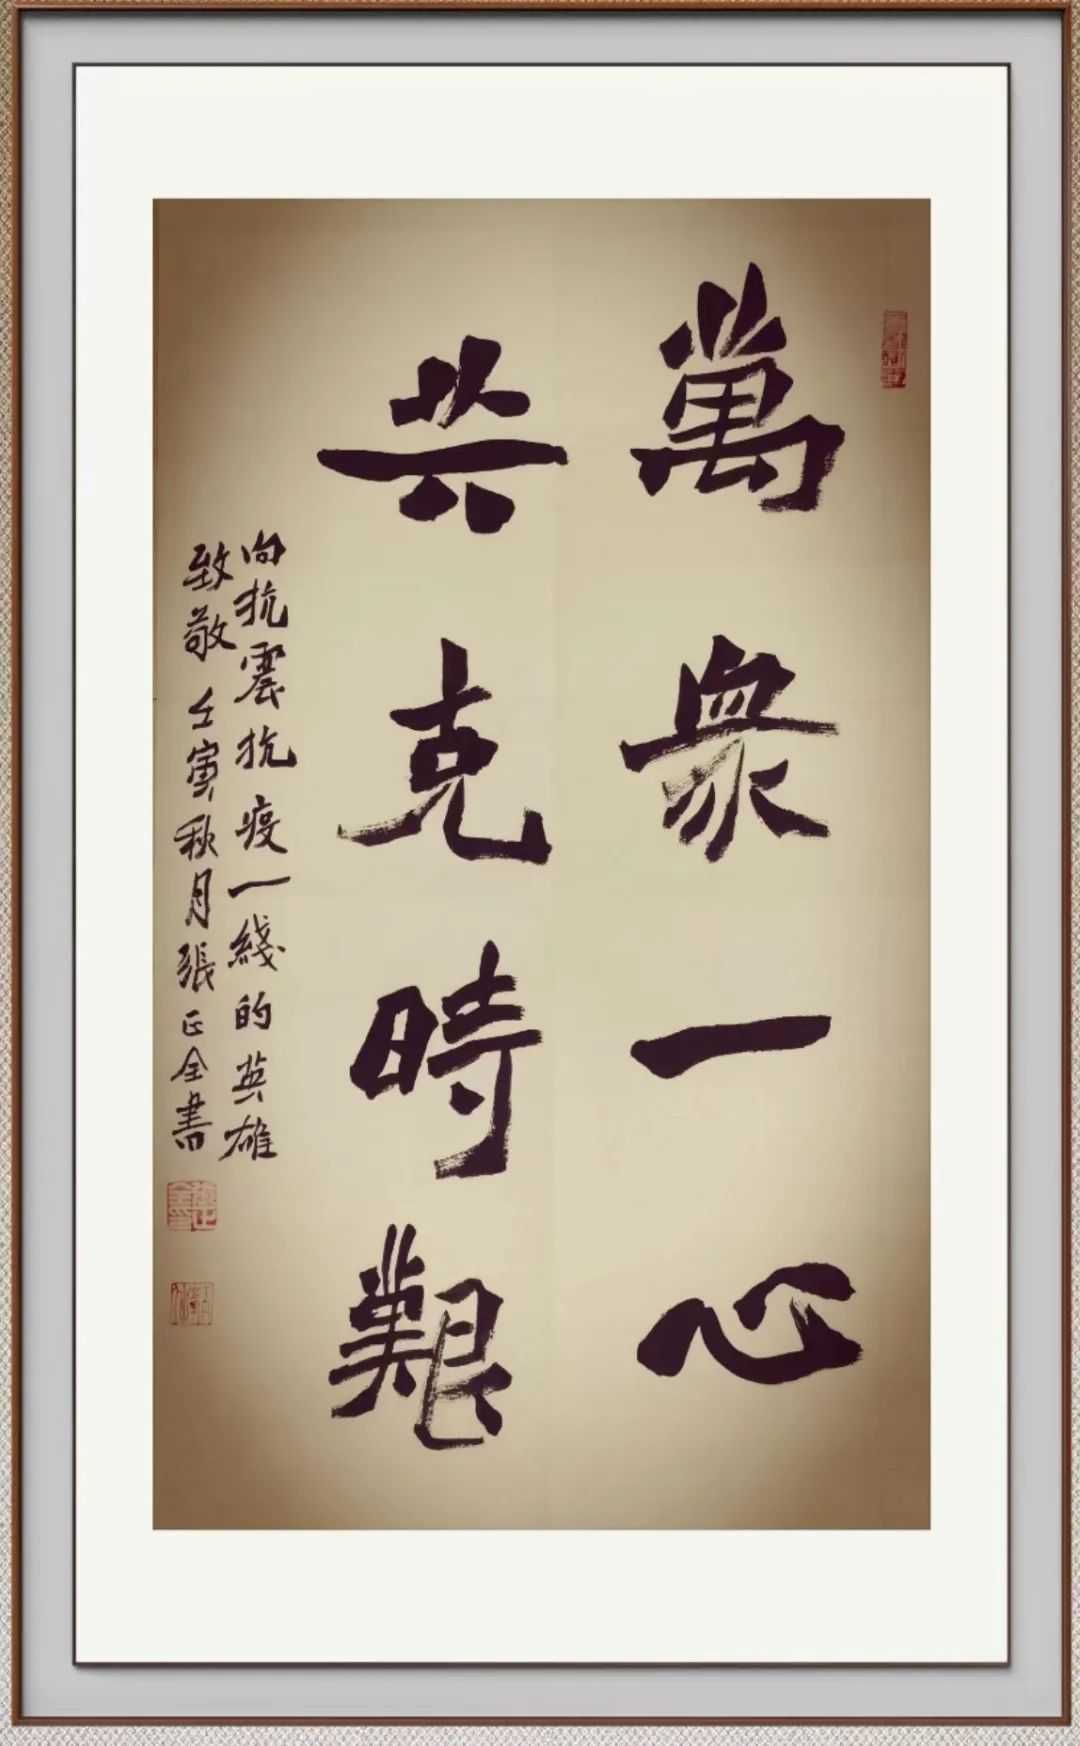 萬衆一心
共克時艱
向抗震抗疫一綫的英雄
致敬 壬寅秋月張正全書